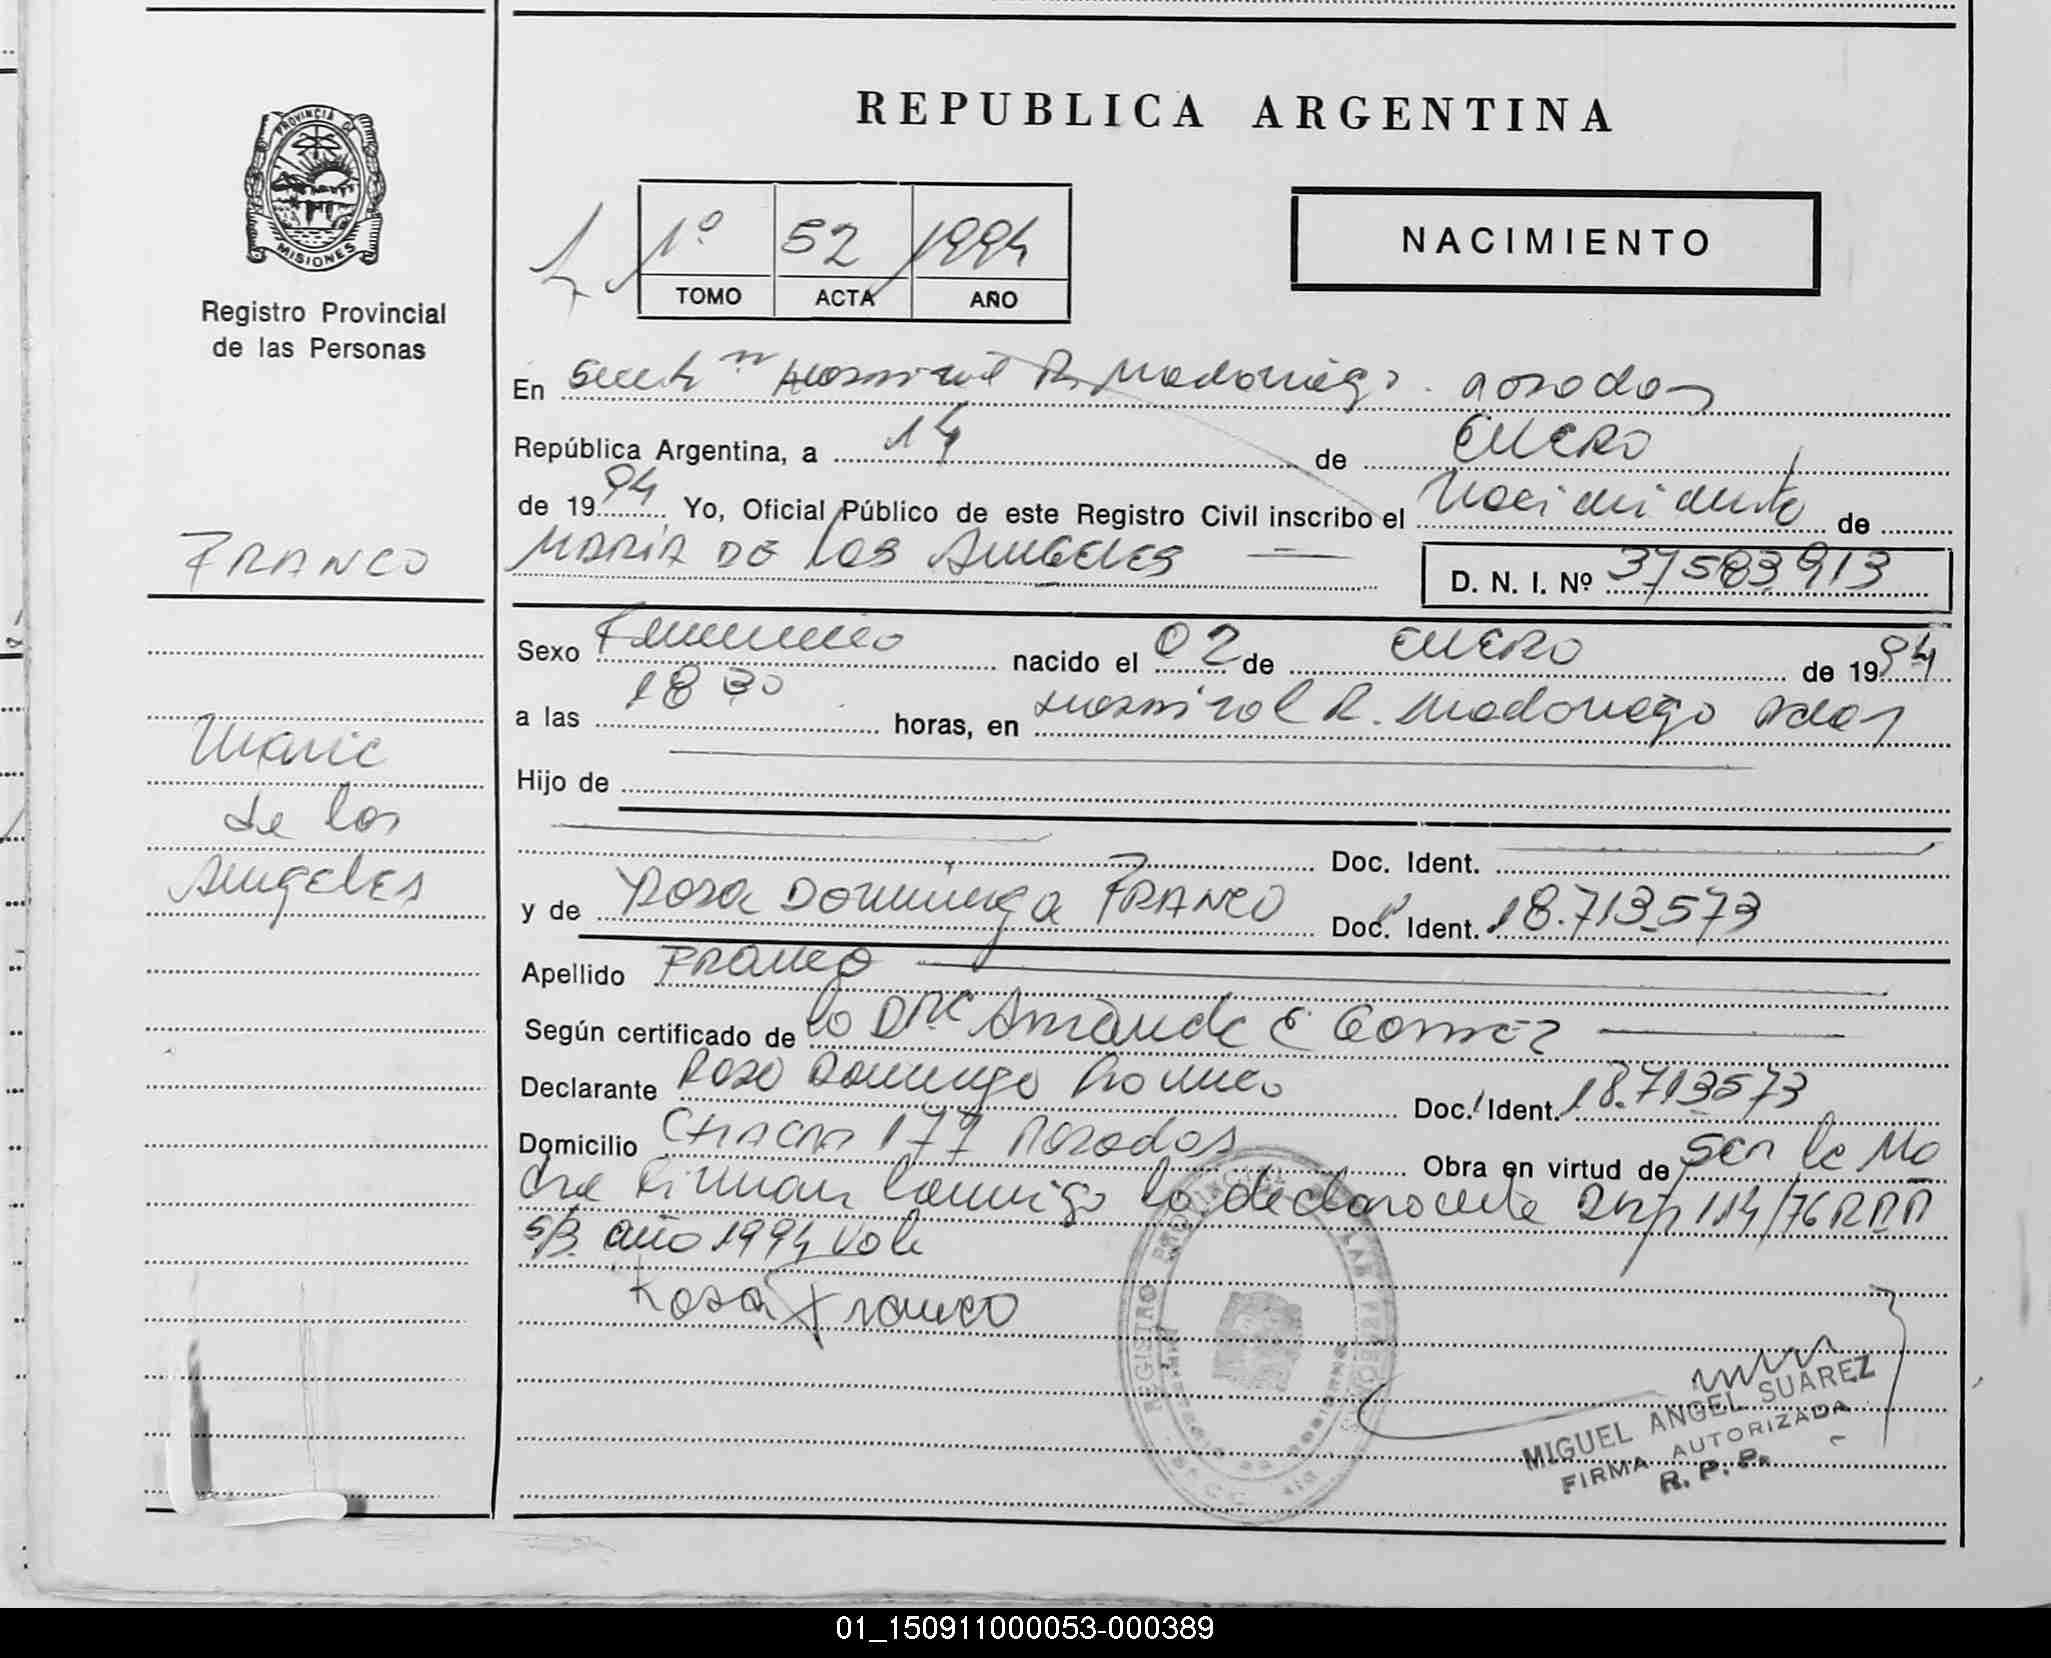 REPUBLICA ARGENTINA
PROVINCIA DE
MISIONES
Registro Provincial
de las Personas
1º 52 1994
TOMO ACTA AÑO
NACIMIENTO
En Hospital R. Madariaga. Posadas
República Argentina, a 14 de ENERO
de 1994 Yo, Oficial Público de este Registro Civil inscribo el Nacimiento de
FRANCO
MARIA DE LOS ANGELES
D. N. I. Nº 37583913
Sexo Femenino nacido el 02 de ENERO de 1994
a las 18 30 horas, en Hospital R. Madariaga Pdas
Maria
de los
Angeles
Hijo de
Doc. Ident.
y de Rosa Dominga FRANCO Doc. Ident. 18.713.573
Apellido FRANCO
Según certificado de la DRA Amanda E Gomez
Declarante Rosa Dominga Franco Doc. Ident. 18.713573
Domicilio CHACRA 177 Posadas Obra en virtud de Ser la Ma
dre Firman conmigo la declarante 114/76 RRA
s/B. año 1994 Vale
Rosa Franco
REGISTRO PROVINCIAL DE LAS PERSONAS
MINISTERIO DE GOBIERNO
MIGUEL ANGEL SUAREZ
FIRMA AUTORIZADA
R. P. P.
01_150911000053-000389